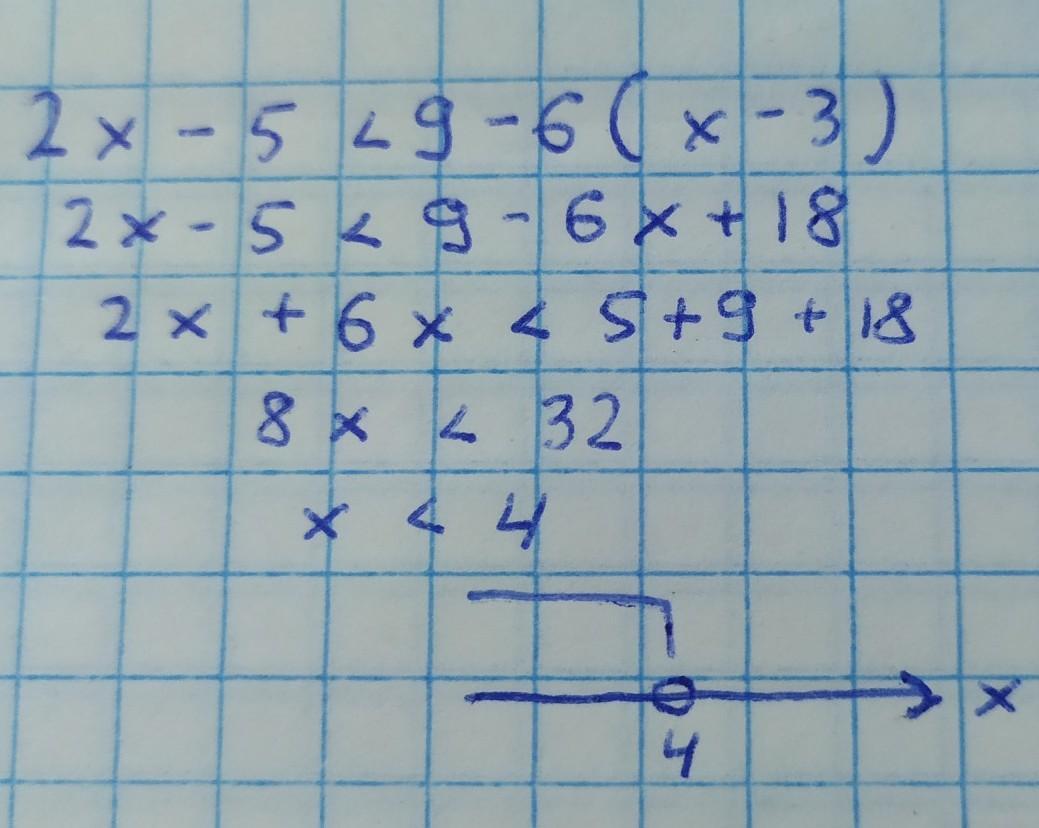 2x - 5 < 9 - 6(x - 3)
2x - 5 < 9 - 6x + 18
2x + 6x < 5 + 9 + 18
8x < 32
x < 4
x
4